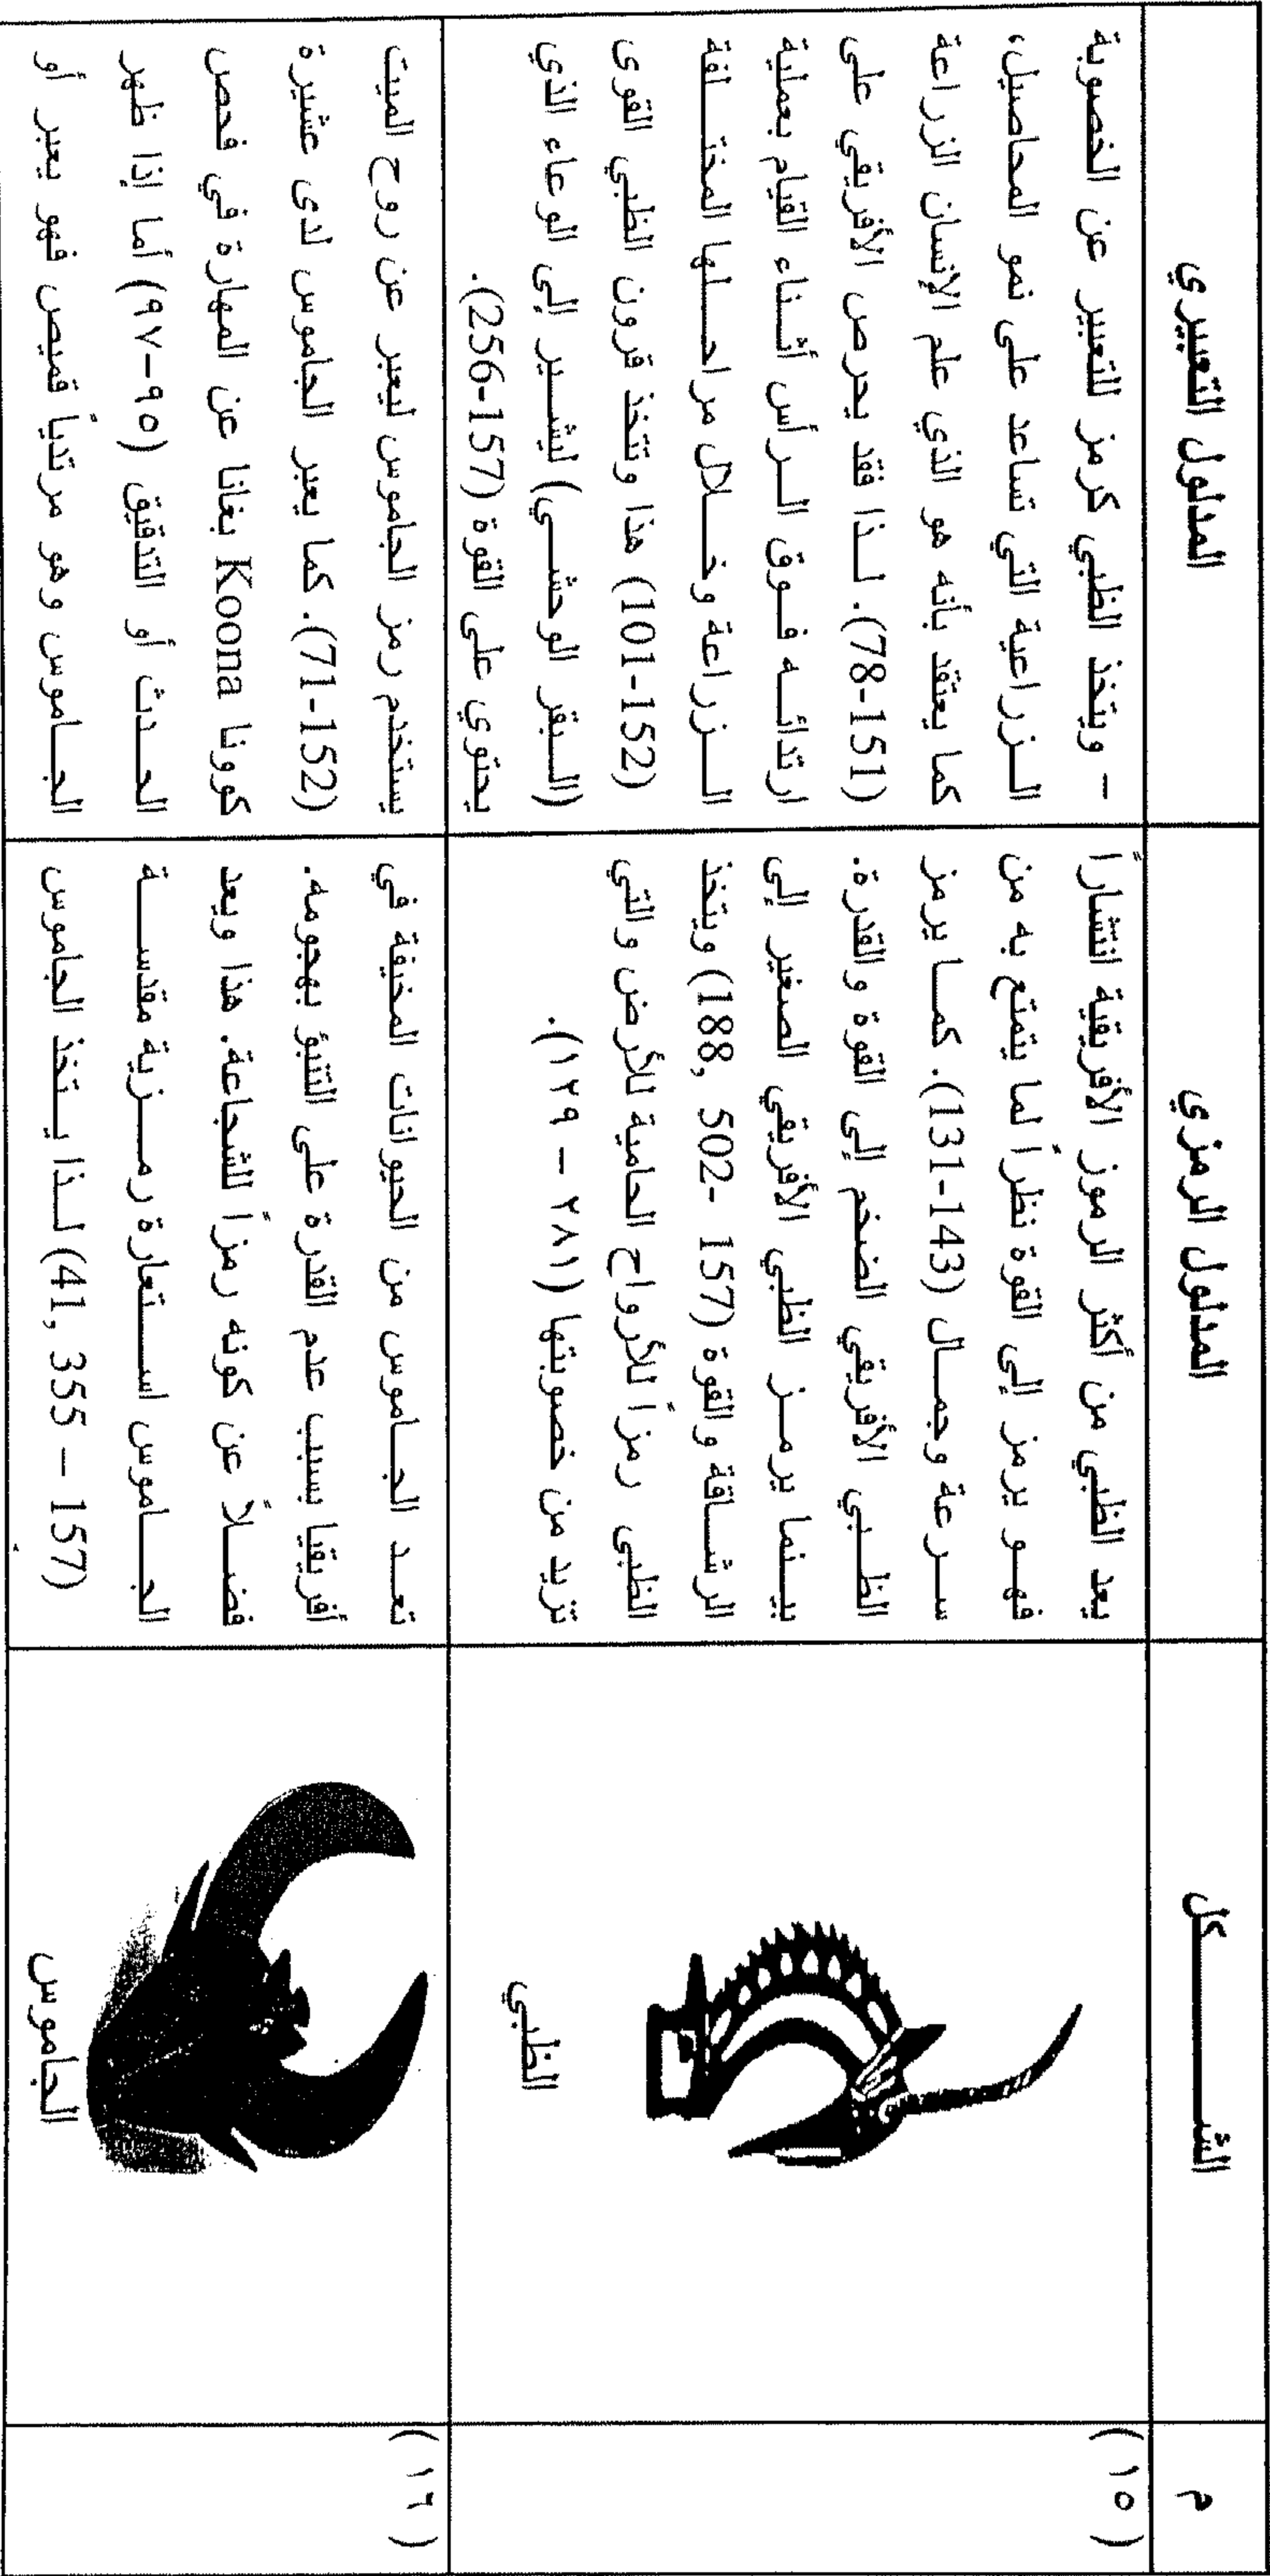 م
الشـــــــكل
المدلول الرمزي
المدلول التعبيري
(١٥)
الظبي
يعد الظبي من أكثر الرموز الأفريقية انتشاراً
فهـو يرمز إلى القوة نظراً لما يتمتع به من
سـرعة وجمـال (131-143). كمـا يرمز
الظـبي الأفريقي الضخم إلى القوة والقدرة.
بيـنما يرمـز الظبي الأفريقي الصغير إلى
الرشـاقة والقوة (157 -502 ,188) ويتخذ
الظبي رمزاً للأرواح الحامية للأرض والتي
تزيد من خصوبتها (٢٨١ – ١٢٩).
– ويتخذ الظبي كرمز للتعبير عن الخصوبة
الـزراعية التي تساعد على نمو المحاصيل،
كما يعتقد بأنه هو الذي علم الإنسان الزراعة
(78-151). لـذا فقد يحرص الأفريقي على
ارتدائـه فـوق الـرأس أثـناء القيام بعملية
الـزراعة وخـلال مراحـلها المختـلفة
(101-152) هذا وتتخذ قرون الظبي القوى
(الـبقر الوحشـي) ليشـير إلى الوعاء الذي
يحتوي على القوة (157-256).
(١٦)
الجاموس
تعـد الجـاموس من الحيوانات المخيفة في
أفريقيا بسبب عدم القدرة على التنبؤ بهجومه.
فضـلاً عن كونه رمزاً للشجاعة. هذا ويعد
الجـاموس اسـتعارة رمـزية مقدسـة
(157 – 355 ,41) لـذا يـتخذ الجاموس
يستخدم رمز الجاموس ليعبر عن روح الميت
(71-152). كما يعبر الجاموس لدى عشيرة
كوونا Koona بغانا عن المهارة في فحص
الحـدث أو التدقيق (٩٥-٩٧) أما إذا ظهر
الجـاموس وهو مرتدياً قميص فهو يعبر أو